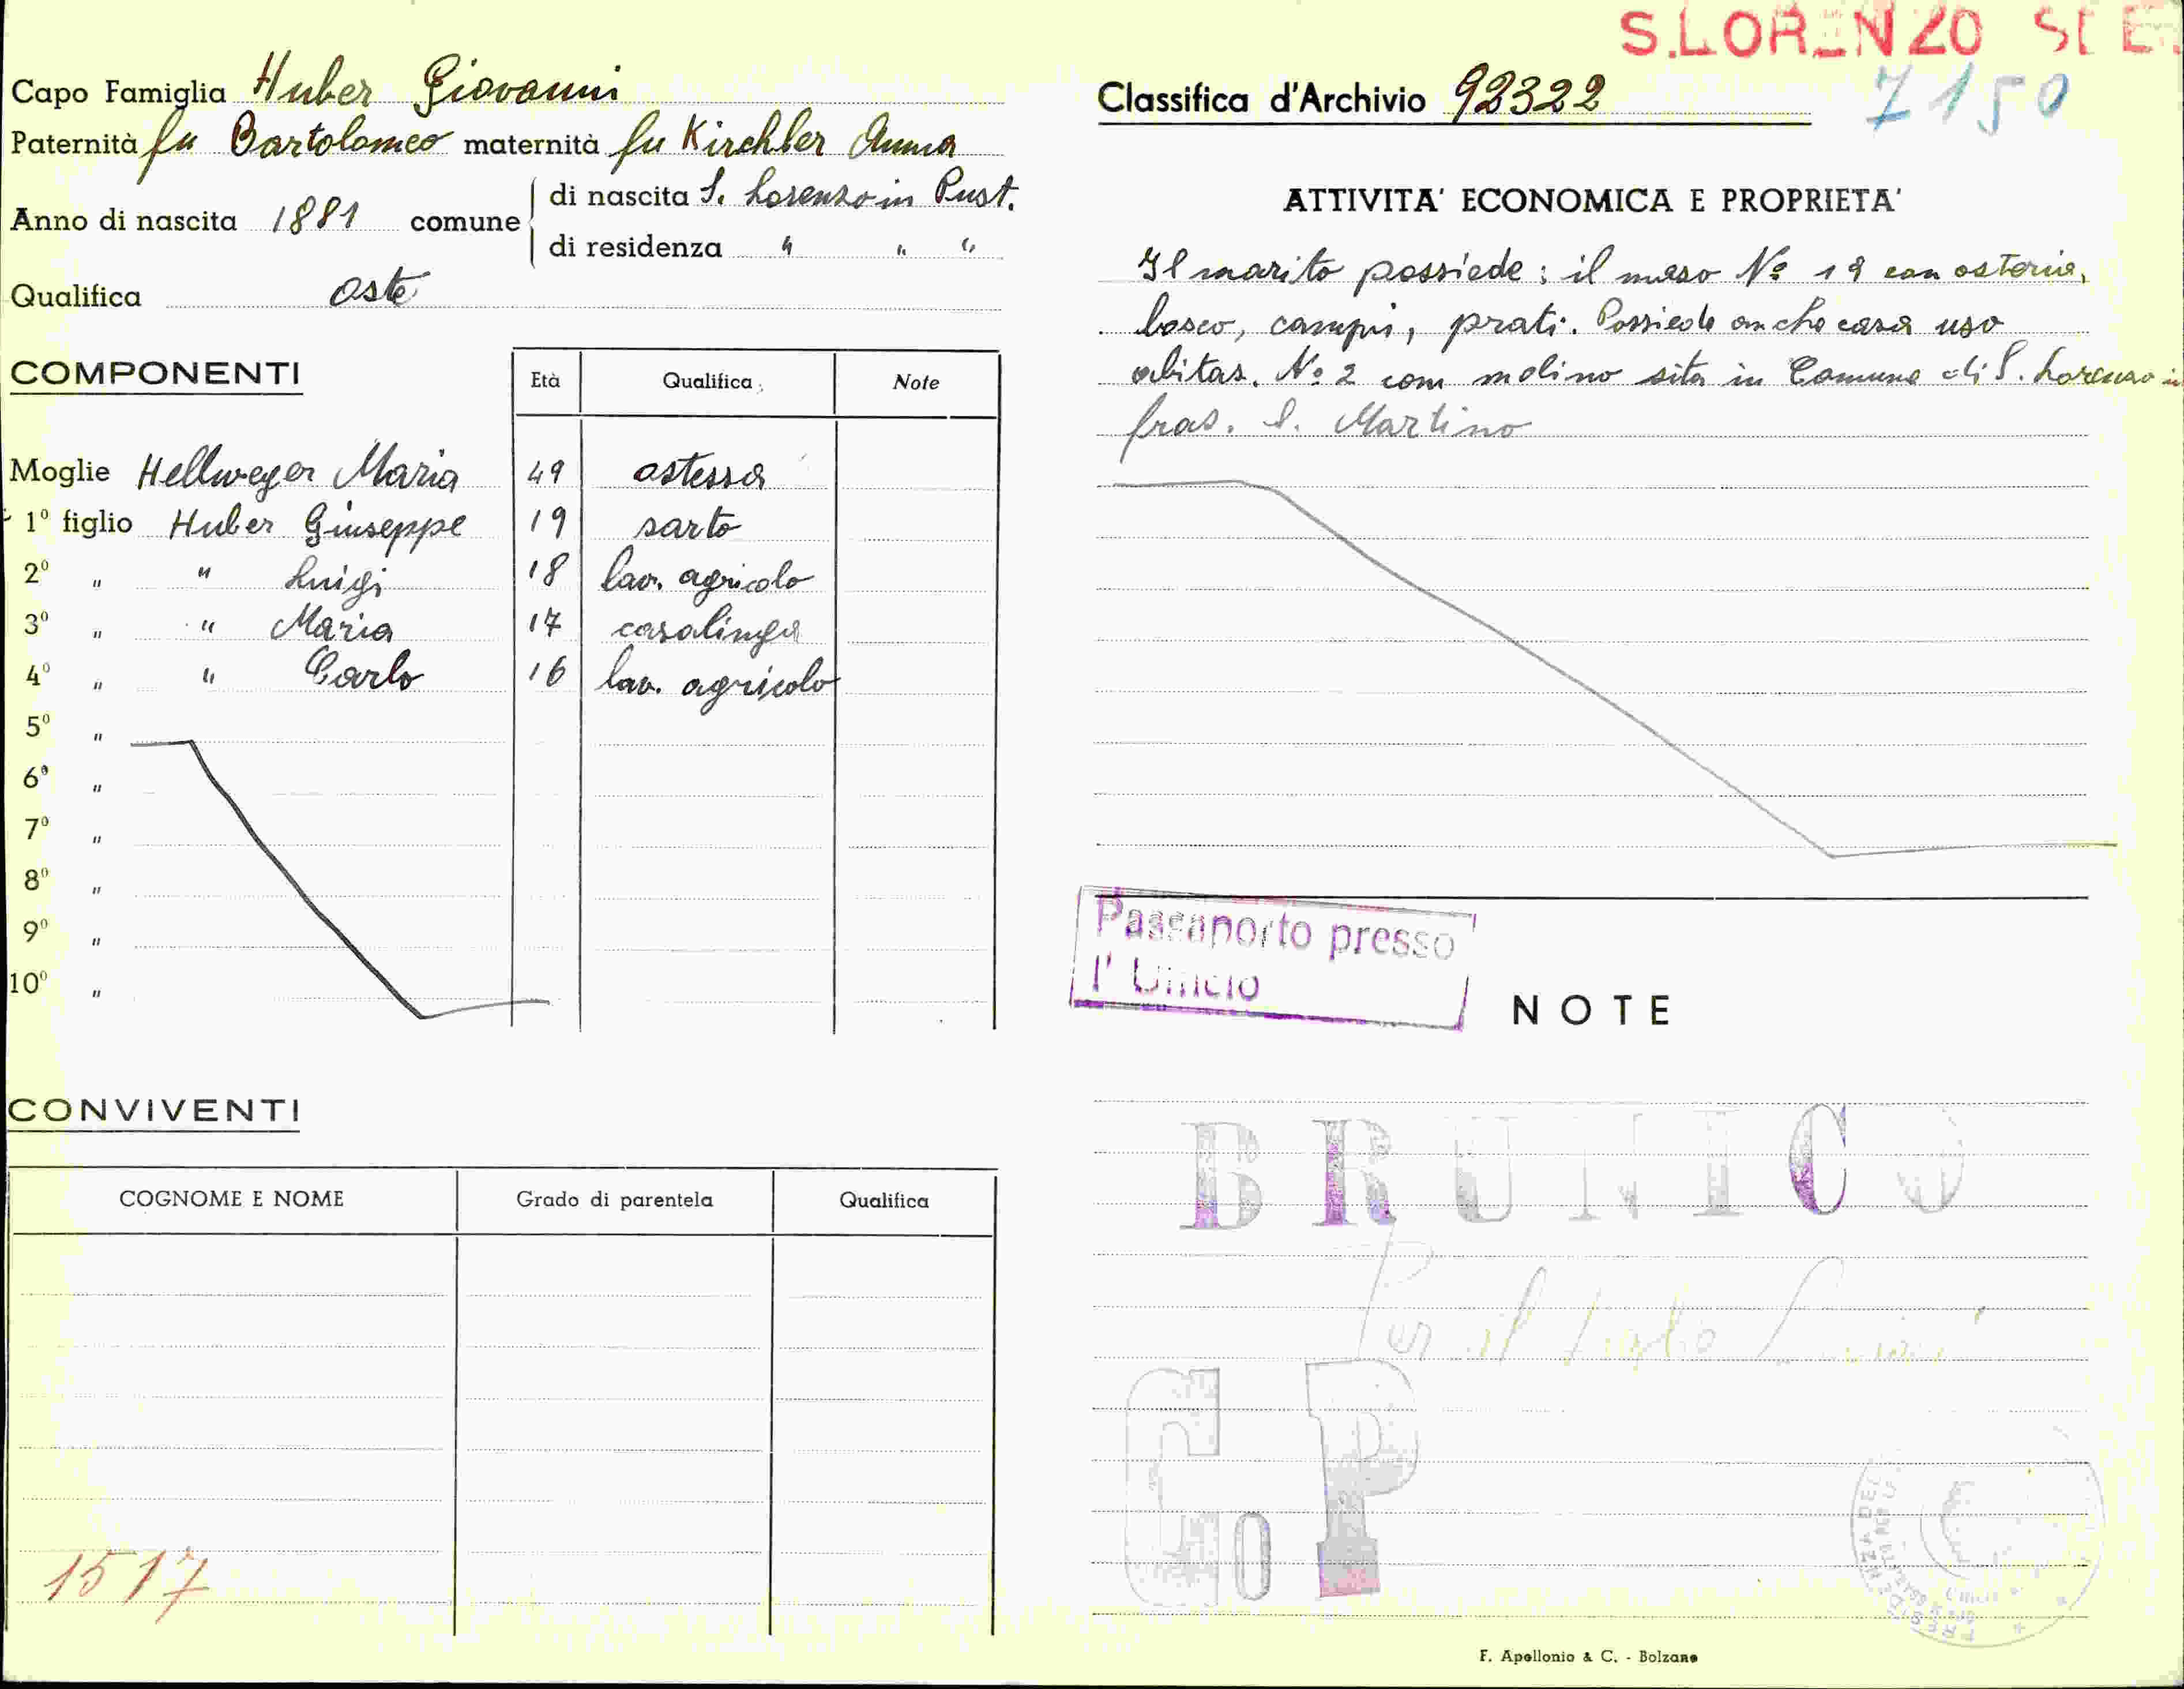 S.LORENZO
7150
Capo Famiglia Huber Giovanni
Paternità fu Bartolomeo maternità fu Kirchler Anna
Anno di nascita 1881 comune
di nascita S. Lorenzo in Pust.
di residenza " " "
Qualifica oste
COMPONENTI
Età Qualifica Note
Moglie Hellweger Maria 49 ostessa
1º figlio Huber Giuseppe 19 sarto
2º " " Luigi 18 lav. agricolo
3º " " Maria 17 casalinga
4º " " Carlo 16 lav. agricolo
5º "
6º "
7º "
8º "
9º "
10º "
CONVIVENTI
COGNOME E NOME Grado di parentela Qualifica
1517
Classifica d'Archivio 92322
ATTIVITA' ECONOMICA E PROPRIETA'
Il marito possiede: il maso Nº 19 con osteria,
bosco, campi, prati. Possiede anche casa uso
abitaz. Nº 2 con molino sita in Comune di S. Lorenzo in
fraz. S. Martino
Passaporto presso
l' Ufficio
NOTE
BRUNICO
Per il figlio Luigi
G P
F. Apollonio & C. - Bolzano